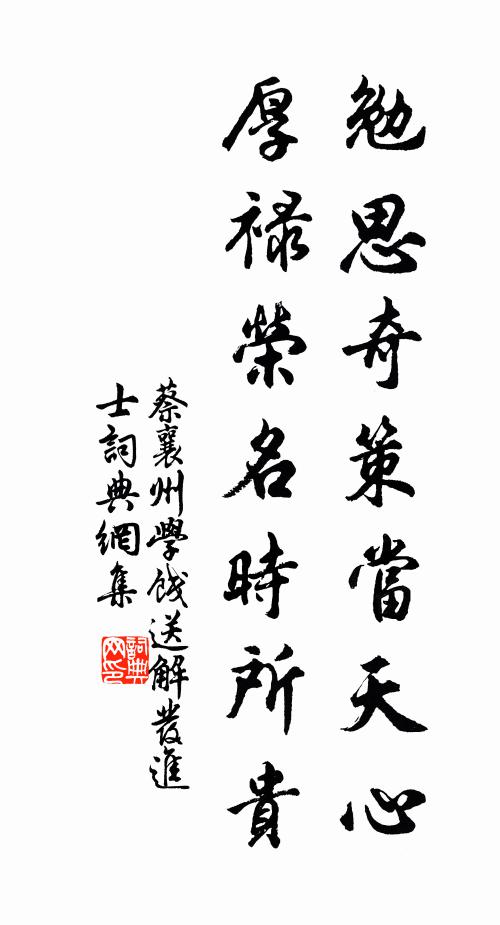 勉思奇策當天心
厚祿榮名時所貴
蔡襄州學餞送解發進
士詞典網集
詞典
网印